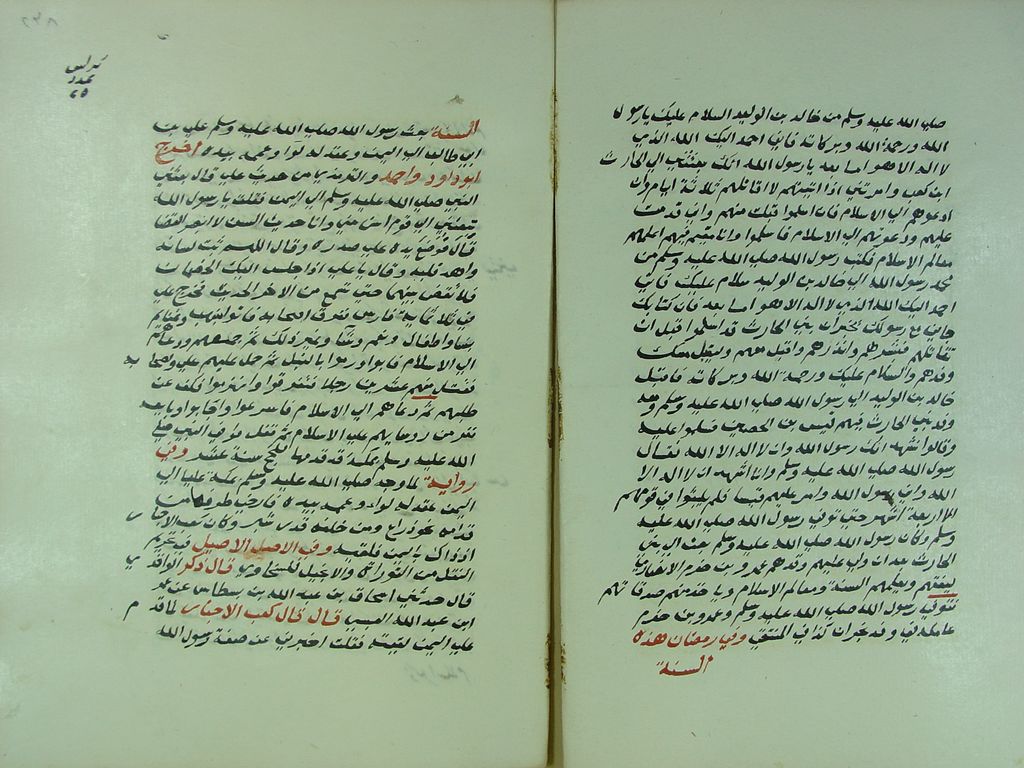 صلى الله عليه وسلم من خالد بن الوليد السلام عليك يا رسول
الله ورحمة الله وبركاته فاني احمد اليك الله الذي
لا اله الا هو اما بعد يا رسول الله انك بعثتني الى الحارث
ابن كعب وامرتني اذا اتيتهم لا اقاتلهم ثلاثة ايام وان
ادعوهم الى الاسلام فان اسلموا قبلت منهم واني قدمت
عليهم ودعوتهم الى الاسلام فاسلموا وانا مقيم فيهم اعلمهم
معالم الاسلام فكتب رسول الله صلى الله عليه وسلم من
محمد رسول الله الى خالد بن الوليد سلام عليك فاني
احمد اليك الله الذي لا اله الا هو اما بعد فان كتابك
جاني مع رسولك بخبر ان بني الحارث قد اسلموا قبل ان
تقاتلهم فبشرهم وانذرهم واقبل معهم وليقبل معك
وفدهم والسلام عليك ورحمة الله وبركاته فاقبل
خالد بن الوليد الى رسول الله صلى الله عليه وسلم ومعه
وفد بني الحارث فيهم قيس بن الحصين فسلموا عليه
وقالوا نشهد انك رسول الله وان لا اله الا الله فقال
رسول الله صلى الله عليه وسلم وانا اشهد ان لا اله الا
الله واني رسول الله وامر عليهم قيسا فلم يلبثوا في قومهم
الا اربعة اشهر حتى توفى رسول الله صلى الله عليه
وسلم وكان رسول الله صلى الله عليه وسلم بعث الى بني
الحارث بعد ان ولى عليهم وفدهم عمرو بن حزم الانصاري
ليفقههم ويعلمهم السنة ومعالم الاسلام وياخذ منهم صدقاتهم
فتوفى رسول الله صلى الله عليه وسلم وعمرو بن حزم
عامله في وفد نجران كذا في المنتقى وفي رمضان هذه
السنة
كراس
عدد
٢٥
السنة بعث رسول الله صلى الله عليه وسلم علي بن
ابي طالب الى اليمن وعقد له لواء وعممه بيده اخرج
ابو داود واحمد والترمذي من حديث علي قال بعثني
النبي صلى الله عليه وسلم الى اليمن فقلت يا رسول الله
تبعثني الى قوم اسن مني وانا حديث السن لا ابصر القضا
قال فوضع يده على صدره وقال اللهم ثبت لسانه
واهد قلبه وقال يا علي اذا جلس اليك الخصمان
فلا تقض بينهما حتى تسمع من الاخر الحديث فخرج علي
في ثلاثمائة فارس ففرق اصحابه فاتوا بنهب وغنايم
ونساء واطفال ونعم وشاء وغير ذلك ثم لقى جمعهم ودعاهم
الى الاسلام فابوا ورموا بالنبل ثم حمل عليهم علي واصحابه
فقتل منهم عشرين رجلا فتفرقوا وانهزموا فكف عن
طلبهم ثم دعاهم الى الاسلام فاسرعوا واجابوا وبايعه
نفر من رؤسايهم على الاسلام ثم قفل فوافى النبي صلى
الله عليه وسلم بمكة قد قدمها للحج سنة عشر وفي
رواية لما وجه صلى الله عليه وسلم بمكة عليا الى
اليمن عقد له لواء وعممه بيده فارخى طرفها من
قدامه نحو ذراع ومن خلفه قدر شبر وكان كعب الاحبار
اذ ذاك باليمن فلقيه وفي الاصيل الاصيل في تحريم
النقل من التوراة والانجيل للسخاوي قال ذكر الواقدي
قال حدثني اسحاق بن عبد الله بن نسطاس عن عمرو
ابن عبد الله العبسي قال قال كعب الاحبار لما قدم
علي اليمن لقيته فقلت اخبرني عن صفة رسول الله